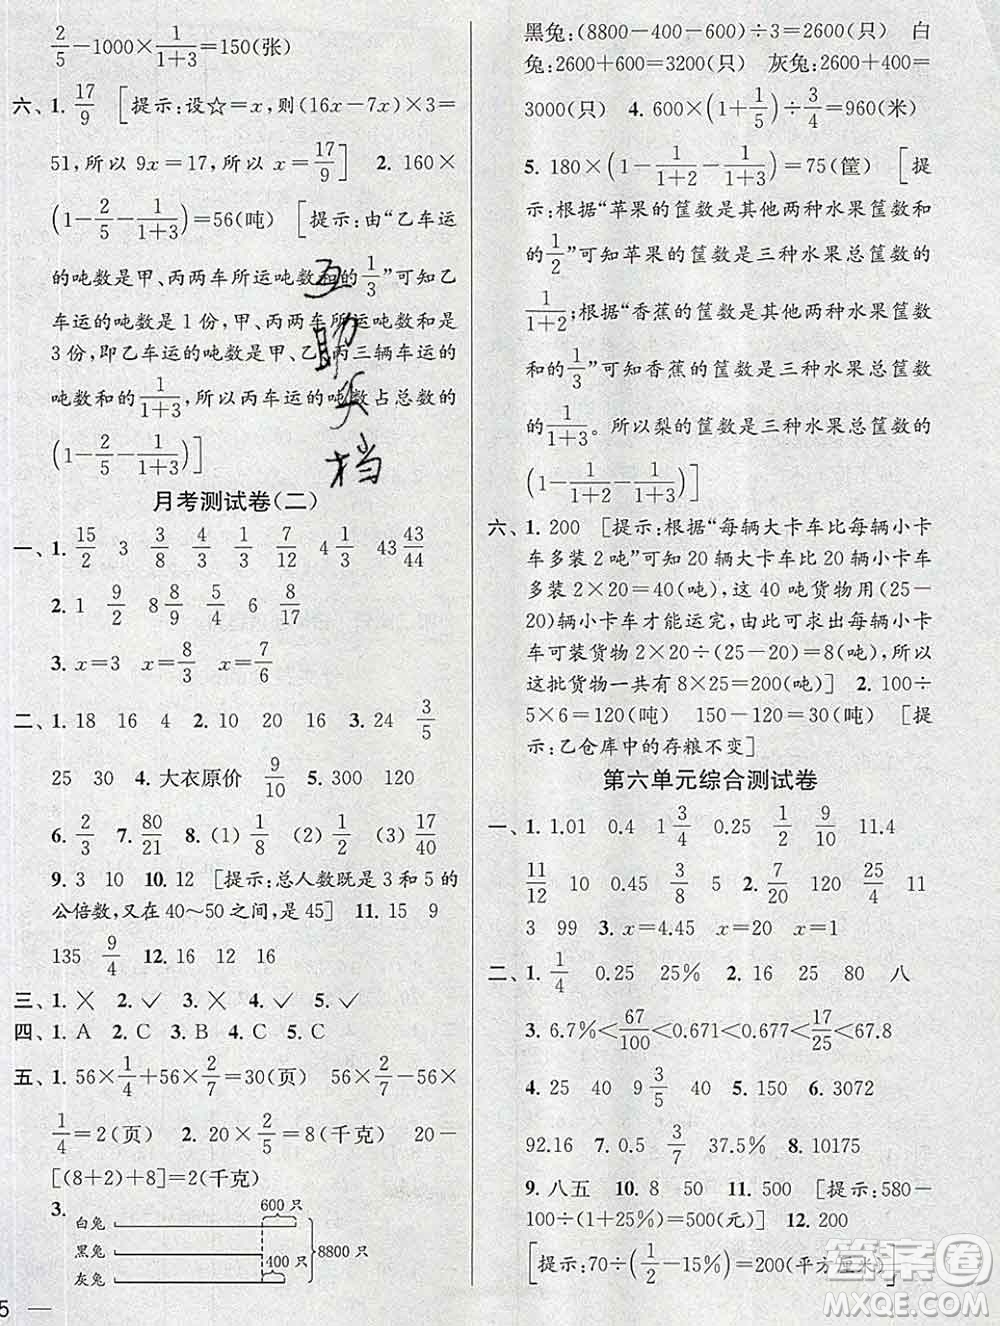 2/5－1000×1/(1+3)＝150(张)
六、1. 17/9 [提示:设☆＝x，则(16x－7x)×3＝
51，所以 9x＝17，所以 x＝17/9] 2. 160×
(1－2/5－1/(1+3))＝56(吨) [提示:由“乙车运
的吨数是甲、丙两车所运吨数和的1/3”可知乙
车运的吨数是 1 份，甲、丙两车的吨数和是
3 份，即乙车运的吨数是甲、乙、丙三辆车运的
吨数和的1/(1+3)，所以丙车运的吨数占总数的
(1－2/5－1/(1+3))]
互助头档
月考测试卷(二)
一、1. 15/2 3 3/8 4/3 1/4 7/12 4 4/43 43/44
2. 1 9/2 8 8/9 5/4 6 8/17
3. x＝3 x＝8/3 x＝7/6
二、1. 18 16 4 2. 10 20 16 3. 24 3/5
25 30 4. 大衣原价 9/10 5. 300 120
6. 2/3 7. 80/21 8. (1) 1/8 (2) 1/2 (3) 17/40
9. 3 10 10. 12 [提示:总人数既是 3 和 5 的
公倍数，又在 40～50 之间，是 45] 11. 15 9
135 9/4 12. 16 12 16
三、1. ✕ 2. ✓ 3. ✕ 4. ✓ 5. ✓
四、1. A 2. C 3. B 4. C 5. C
五、1. 56×1/4＋56×2/7＝30(页) 56×2/7－56×
1/4＝2(页) 2. 20×2/5＝8(千克) 20－
[(8＋2)＋8]＝2(千克)
3.
600 只
白兔
黑兔
400 只
8800 只
灰兔
5 —
黑兔:(8800－400－600)÷3＝2600(只) 白
兔:2600＋600＝3200(只) 灰兔:2600＋400＝
3000(只) 4. 600×(1＋1/5)÷3/4＝960(米)
5. 180×(1－1/(1+2)－1/(1+3))＝75(筐) [提
示:根据“苹果的筐数是其他两种水果筐数和
的1/2”可知苹果的筐数是三种水果总筐数的
1/(1+2)；根据“香蕉的筐数是其他两种水果筐数
和的1/3”可知香蕉的筐数是三种水果总筐数的
1/(1+3)。所以梨的筐数是三种水果总筐数的
(1－1/(1+2)－1/(1+3))]
六、1. 200 [提示:根据“每辆大卡车比每辆小卡
车多装 2 吨”可知 20 辆大卡车比 20 辆小卡车
多装 2×20＝40(吨)，这 40 吨货物用(25－
20)辆小卡车才能运完。由此可求出每辆小卡
车可装货物 2×20÷(25－20)＝8(吨)，所以
这批货物一共有 8×25＝200(吨)] 2. 100÷
5×6＝120(吨) 150－120＝30(吨) [提
示:乙仓库中的存粮不变]
第六单元综合测试卷
一、1. 1.01 0.4 1 3/4 0.25 1/2 9/10 11.4
11/12 10 24 45 2/5 2. 7/20 120 25/4
3 99 3. x＝4.45 x＝20 x＝1
二、1. 1/4 0.25 25% 2. 16 25 80 八
3. 6.7%＜67/100＜0.671＜0.677＜17/25＜67.8
4. 25 40 9 3/5 5. 40 150 6. 3072
92.16 7. 0.5 3/7 37.5% 8. 10175
9. 八五 10. 8 50 11. 500 [提示:580－
100÷(1＋25%)＝500(元)] 12. 200
[提示:70÷(1/2－15%)＝200(平方厘米)]
答案圈
MXQE.COM